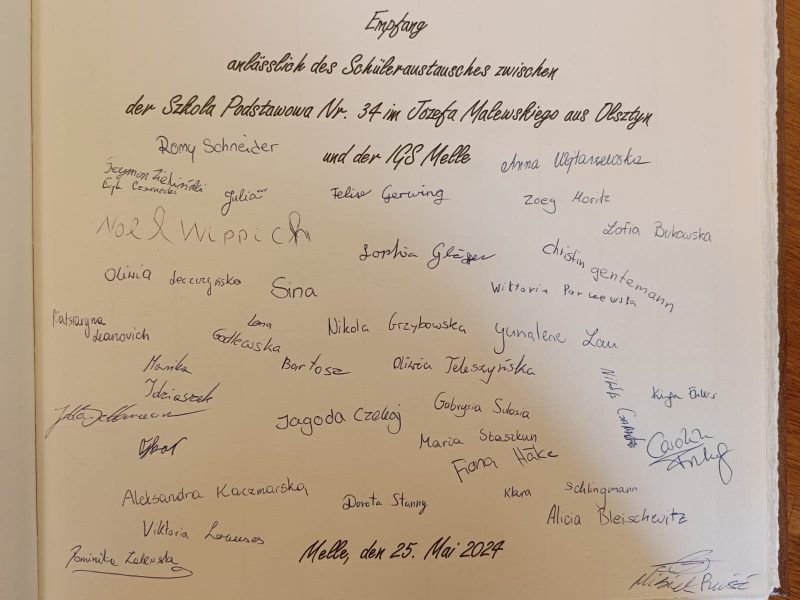 Empfang
anlässlich des Schüleraustausches zwischen
der Szkola Podstawowa Nr. 34 im Jozefa Malewskiego aus Olsztyn
und der IGS Melle
Romy Schneider
Anna Wojtaszewska
Szymon Zieliński
Eryk Czarnecki
Julia
Felix Gerwing
Zoey Moritz
Zofia Bukowska
Noel Wippich
Sophia Gläser
Christin gentemann
Oliwia Leszczyńska
Sina
Wiktoria
Katsiaryna
Leanovich
Lena
Godlewska
Nikola Grzybowska
Lau
Monika
Idziaszek
Bartosz
Oliwia Teleszyńska
Kira Ehlers
Jagoda Czełej
Gabrysia Sulosia
Maria Staszkun
Fiona Häke
Carolin
Aleksandra Kaczmarska
Dorota Stanny
Klara Schlingmann
Alicia Bleischewitz
Viktoria
Melle, den 25. Mai 2024
Dominika Zalewska